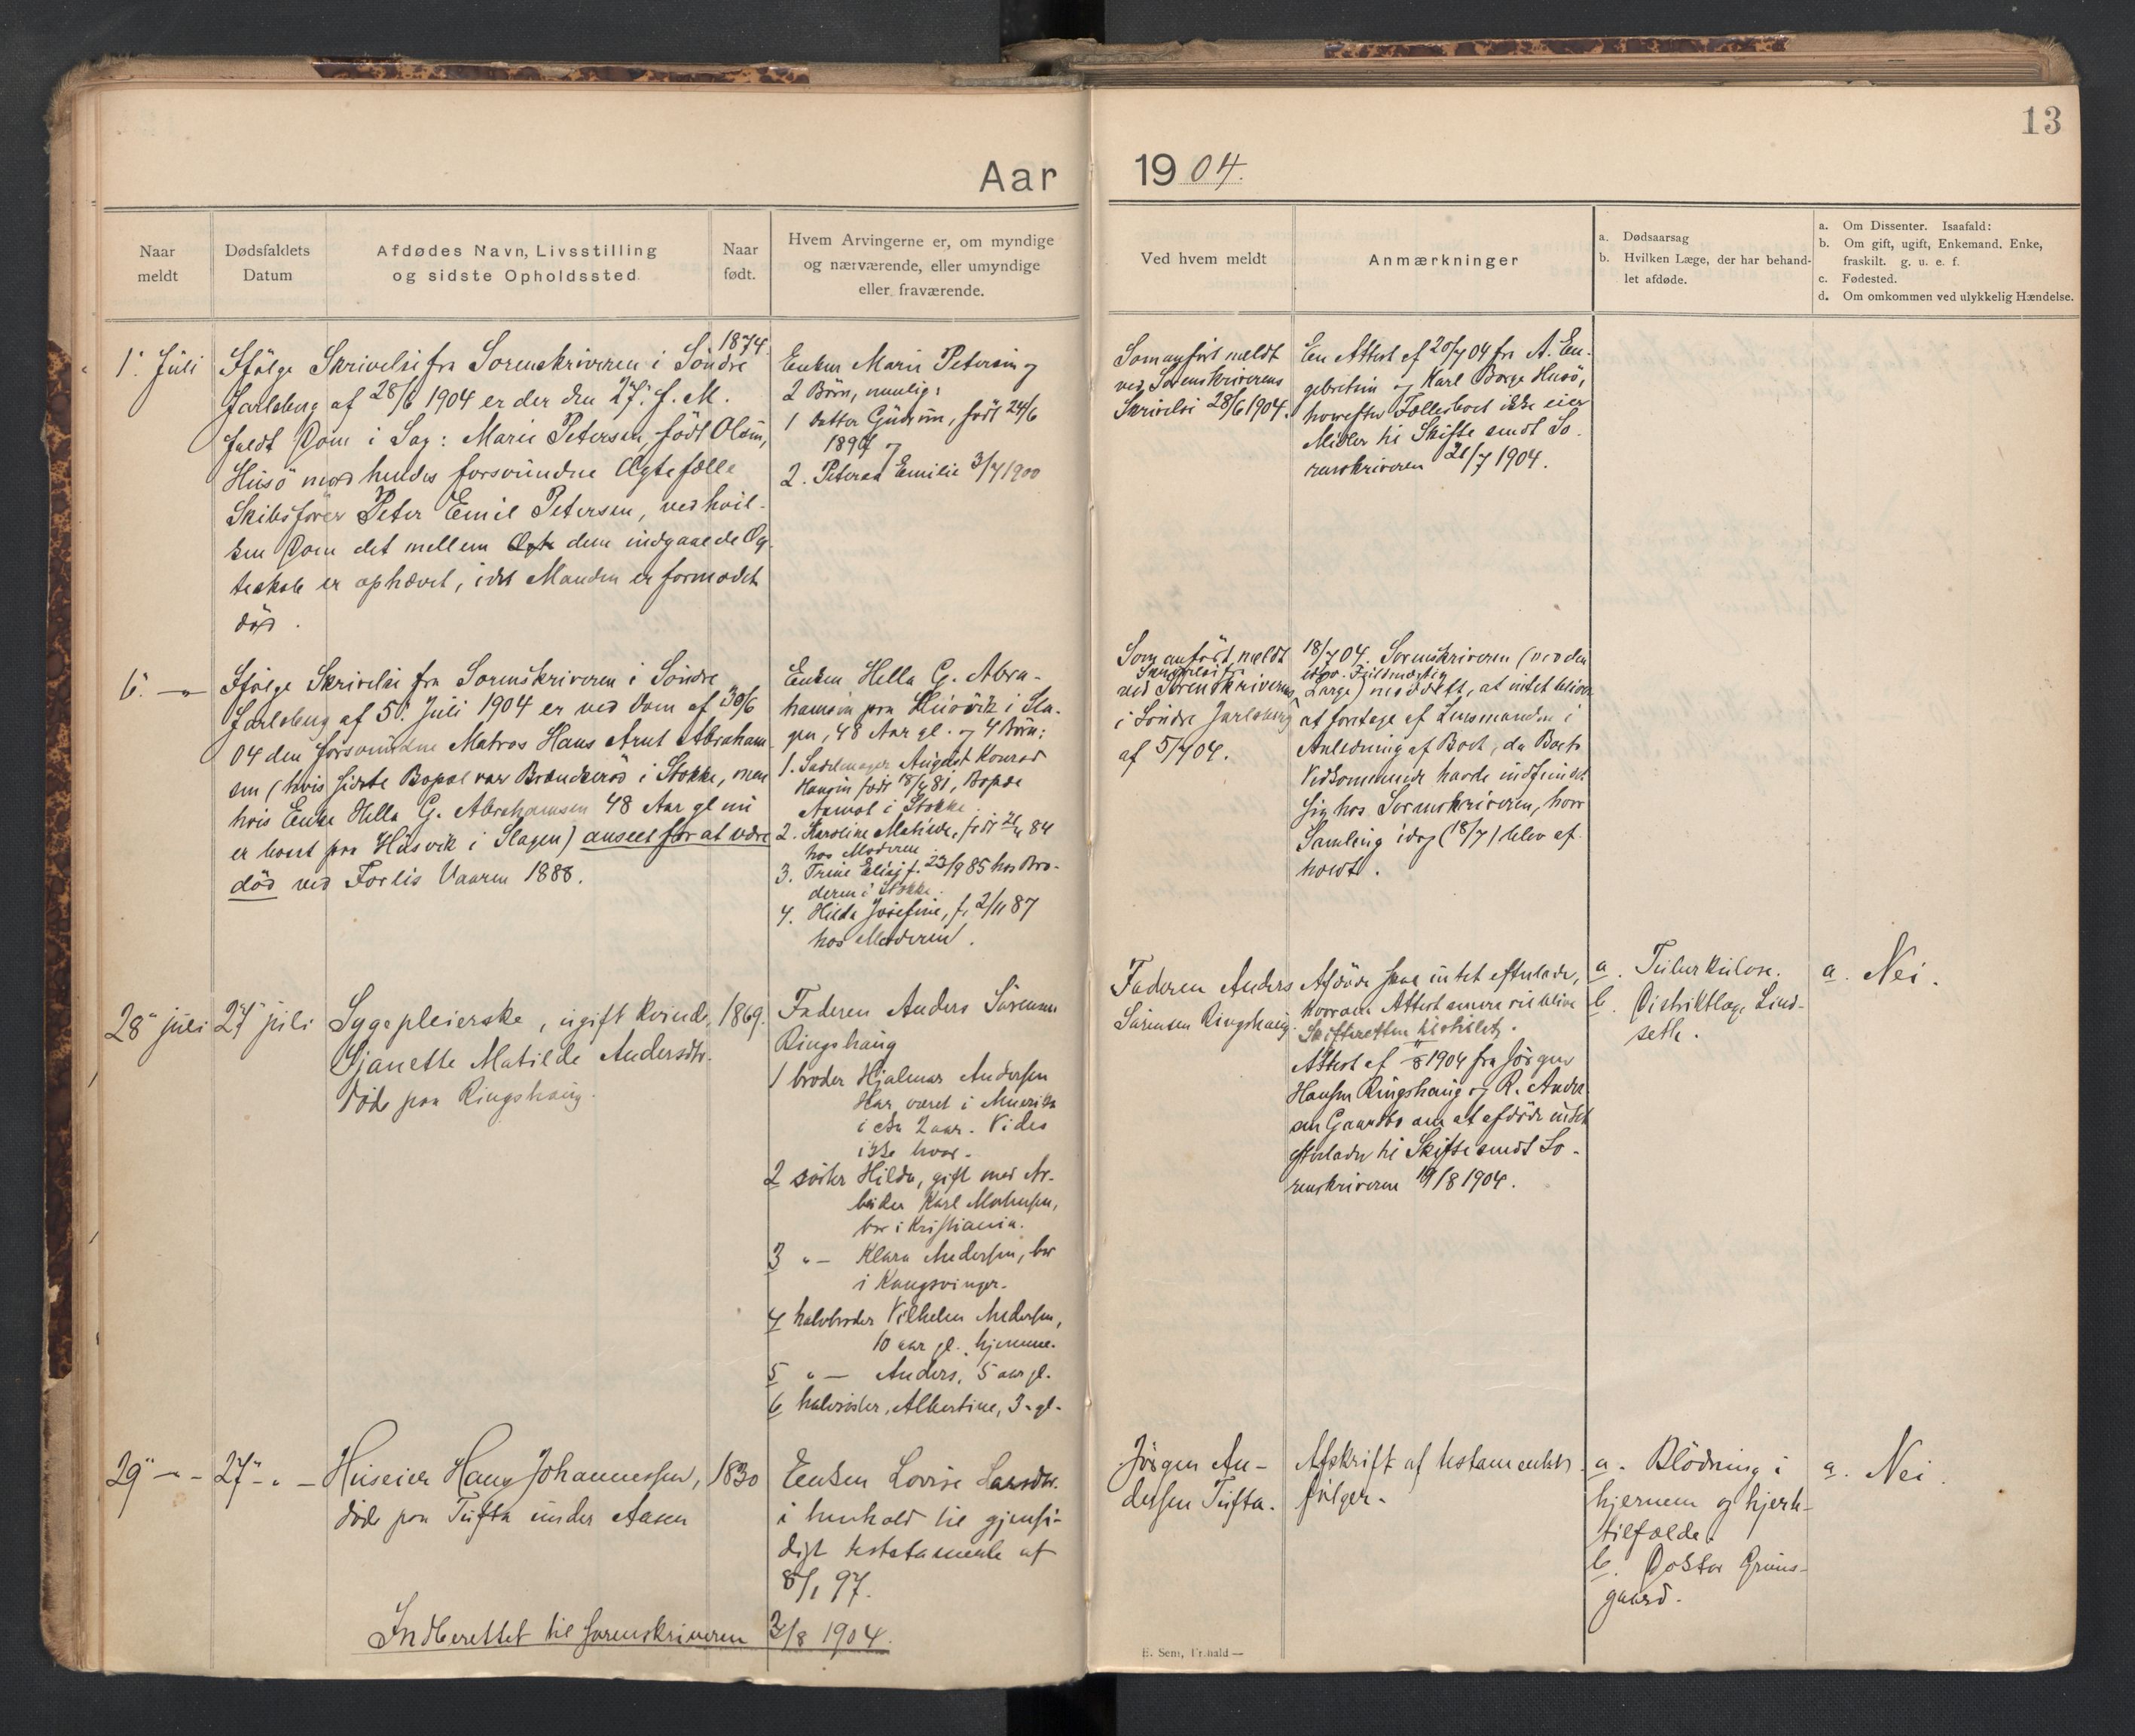 13
Aar 1904.
Naar meldt
Dødsfaldets Datum
Afdødes Navn, Livsstilling og sidste Opholdssted.
Naar født.
Hvem Arvingerne er, om myndige og nærværende, eller umyndige eller fraværende.
Ved hvem meldt
Anmærkninger
a. Dødsaarsag
b. Hvilken Læge, der har behandlet afdøde.
a. Om Dissenter. Isaafald:
b. Om gift, ugift, Enkemand. Enke, fraskilt. g. u. e. f.
c. Fødested.
d. Om omkommen ved ulykkelig Hændelse.
1. Juli
Ifölge Skrivelse fra Sorenskriveren i Söndre
1874.
Jarlsberg af 28/6 1904 er der den 27. f. M.
faldt Dom i Sag: Marie Petersen, födt Olsen,
Husö mod hendes forsvundne Ægtefælle
Skibsförer Peter Emil Petersen, ved hvil-
ken Dom det mellem dem indgaaede Æg-
teskab er ophævet, idet Manden er formodet
död.
Enken Marie Petersen og
2 Börn, nemlig:
1 Datter Gudrun, födt 24/6
1897 og
2. Petersen Emilie 3/7 1900
Som anfört meldt
ved Sorenskriverens
Skrivelse 28/6 1904.
En Attest af 20/7 04 fra A. En-
gebretsen og Karl Borge Husö,
hvorefter Fællesboet ikke eier
Midler til Skifte sendt So-
renskriveren 21/7 1904.
6. — "
Ifölge Skrivelse fra Sorenskriveren i Söndre
Jarlsberg af 5. Juli 1904 er ved Dom af 30/6
04 den forsvundne Matros Hans Arnt Abraham
sen (hvis sidste Bopæl var Brænderöd i Stokke, men
hvis Enke Hella G. Abrahamsen 48 Aar gl nu
er bosat paa Husvik i Slagen) anseet for at være
död ved Forlis Vaaren 1888.
Enken Hella G. Abra-
hamsen paa Husvik i Sla-
gen, 48 Aar gl. og 4 Börn:
1. Sadelmager August Konrad
Hansen födt 18/4 81, Bopæl
Aamot i Stokke
2. Karoline Matilde, födt 84
hos Moderen
3. Trine Elise f. 23/9 85 hos Bro-
deren i Stokke.
4. Hilda Josefine, f. 2/11 87
hos Moderen.
Som anfört meldt
Skrivelse fra
ved Sorenskriverens
i Söndre Jarlsberg
af 5/7 04.
18/7 04. Sorenskriveren (ved den
edsv. Fuldmægtig
Lange) meddelt, at intet bliver
at foretage af Lensmanden i
Anledning af Boet, da Boets
Vedkommende havde indfundet
sig hos Sorenskriveren, hvor
Samling idag (18/7) blev af-
holdt.
28" juli
27" juli
Sygepleierske, ugift kvinde,
Gjanette Matilde Andersdtr.
döde paa Ringshaug.
1869.
Faderen Anders Sörensen
Ringshaug
1 broder Hjalmar Andersen
Har været i Amerika
i ca 2 aar. Vides
ikke hvor.
2 söster Hilda, gift med Ar-
beider Karl Mathisen,
bor i Kristiania.
3 " — Klara Andersen, bor
i Kongsvinger.
4 halvbroder Vilhelm Andersen,
10 aar gl. hjemme.
5 " — Anders, 5 aar gl.
6 halvsöster, Albertine, 3 " gl.
Faderen Anders
Sörensen Ringshaug.
Afdöde skal intet efterlade,
hvorom Attest senere vil blive
Skifteretten tilstillet.
Attest af 1904 fra Jörgen
Hansen Ringshaug og R. Andre
sen Gaardbo om at afdöde intet
efterlader til Skifte sendt So-
renskriveren 19/8 1904.
a. Tuberkulose.
b. Distriktlæge Lind-
seth.
a. Nei.
29" — " —
27" — " —
Huseier Hans Johannessen,
döde paa Tufta under Aasen
1830
Enken Lovise Larsdtr.
i henhold til gjensi-
digt testamente af
8/1 97.
Jörgen An-
dersen Tufta.
Afskrift af testamentet
fölger.
a. Blödning i
hjernen og hjerte-
tilfælde.
b. Doktor Gröns-
gaard.
a. Nei.
Indberettet til sorenskriveren 2/8 1904.
E. Sem, Fr.hald —